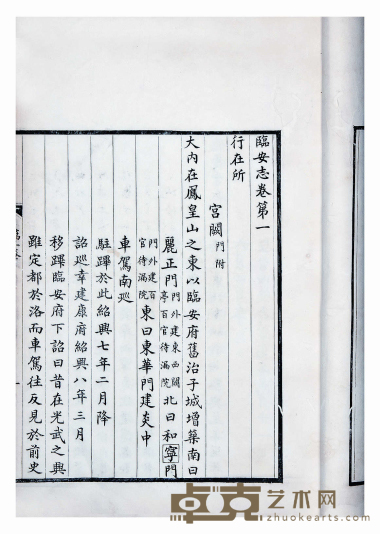 臨安志卷第一
行在所
宮闕門附
大內在鳳皇山之東以臨安府舊治子城增築南曰
麗正門門外建東西闕亭百官待漏院北曰和寧門
門外建百官待漏院東曰東華門建炎中
車駕南巡
駐蹕於此紹興七年二月降
詔巡幸建康府紹興八年三月
移蹕臨安府下詔曰昔在光武之興
雖定都於洛而車駕往反見於前史
卓克艺术网
zhuokearts.com